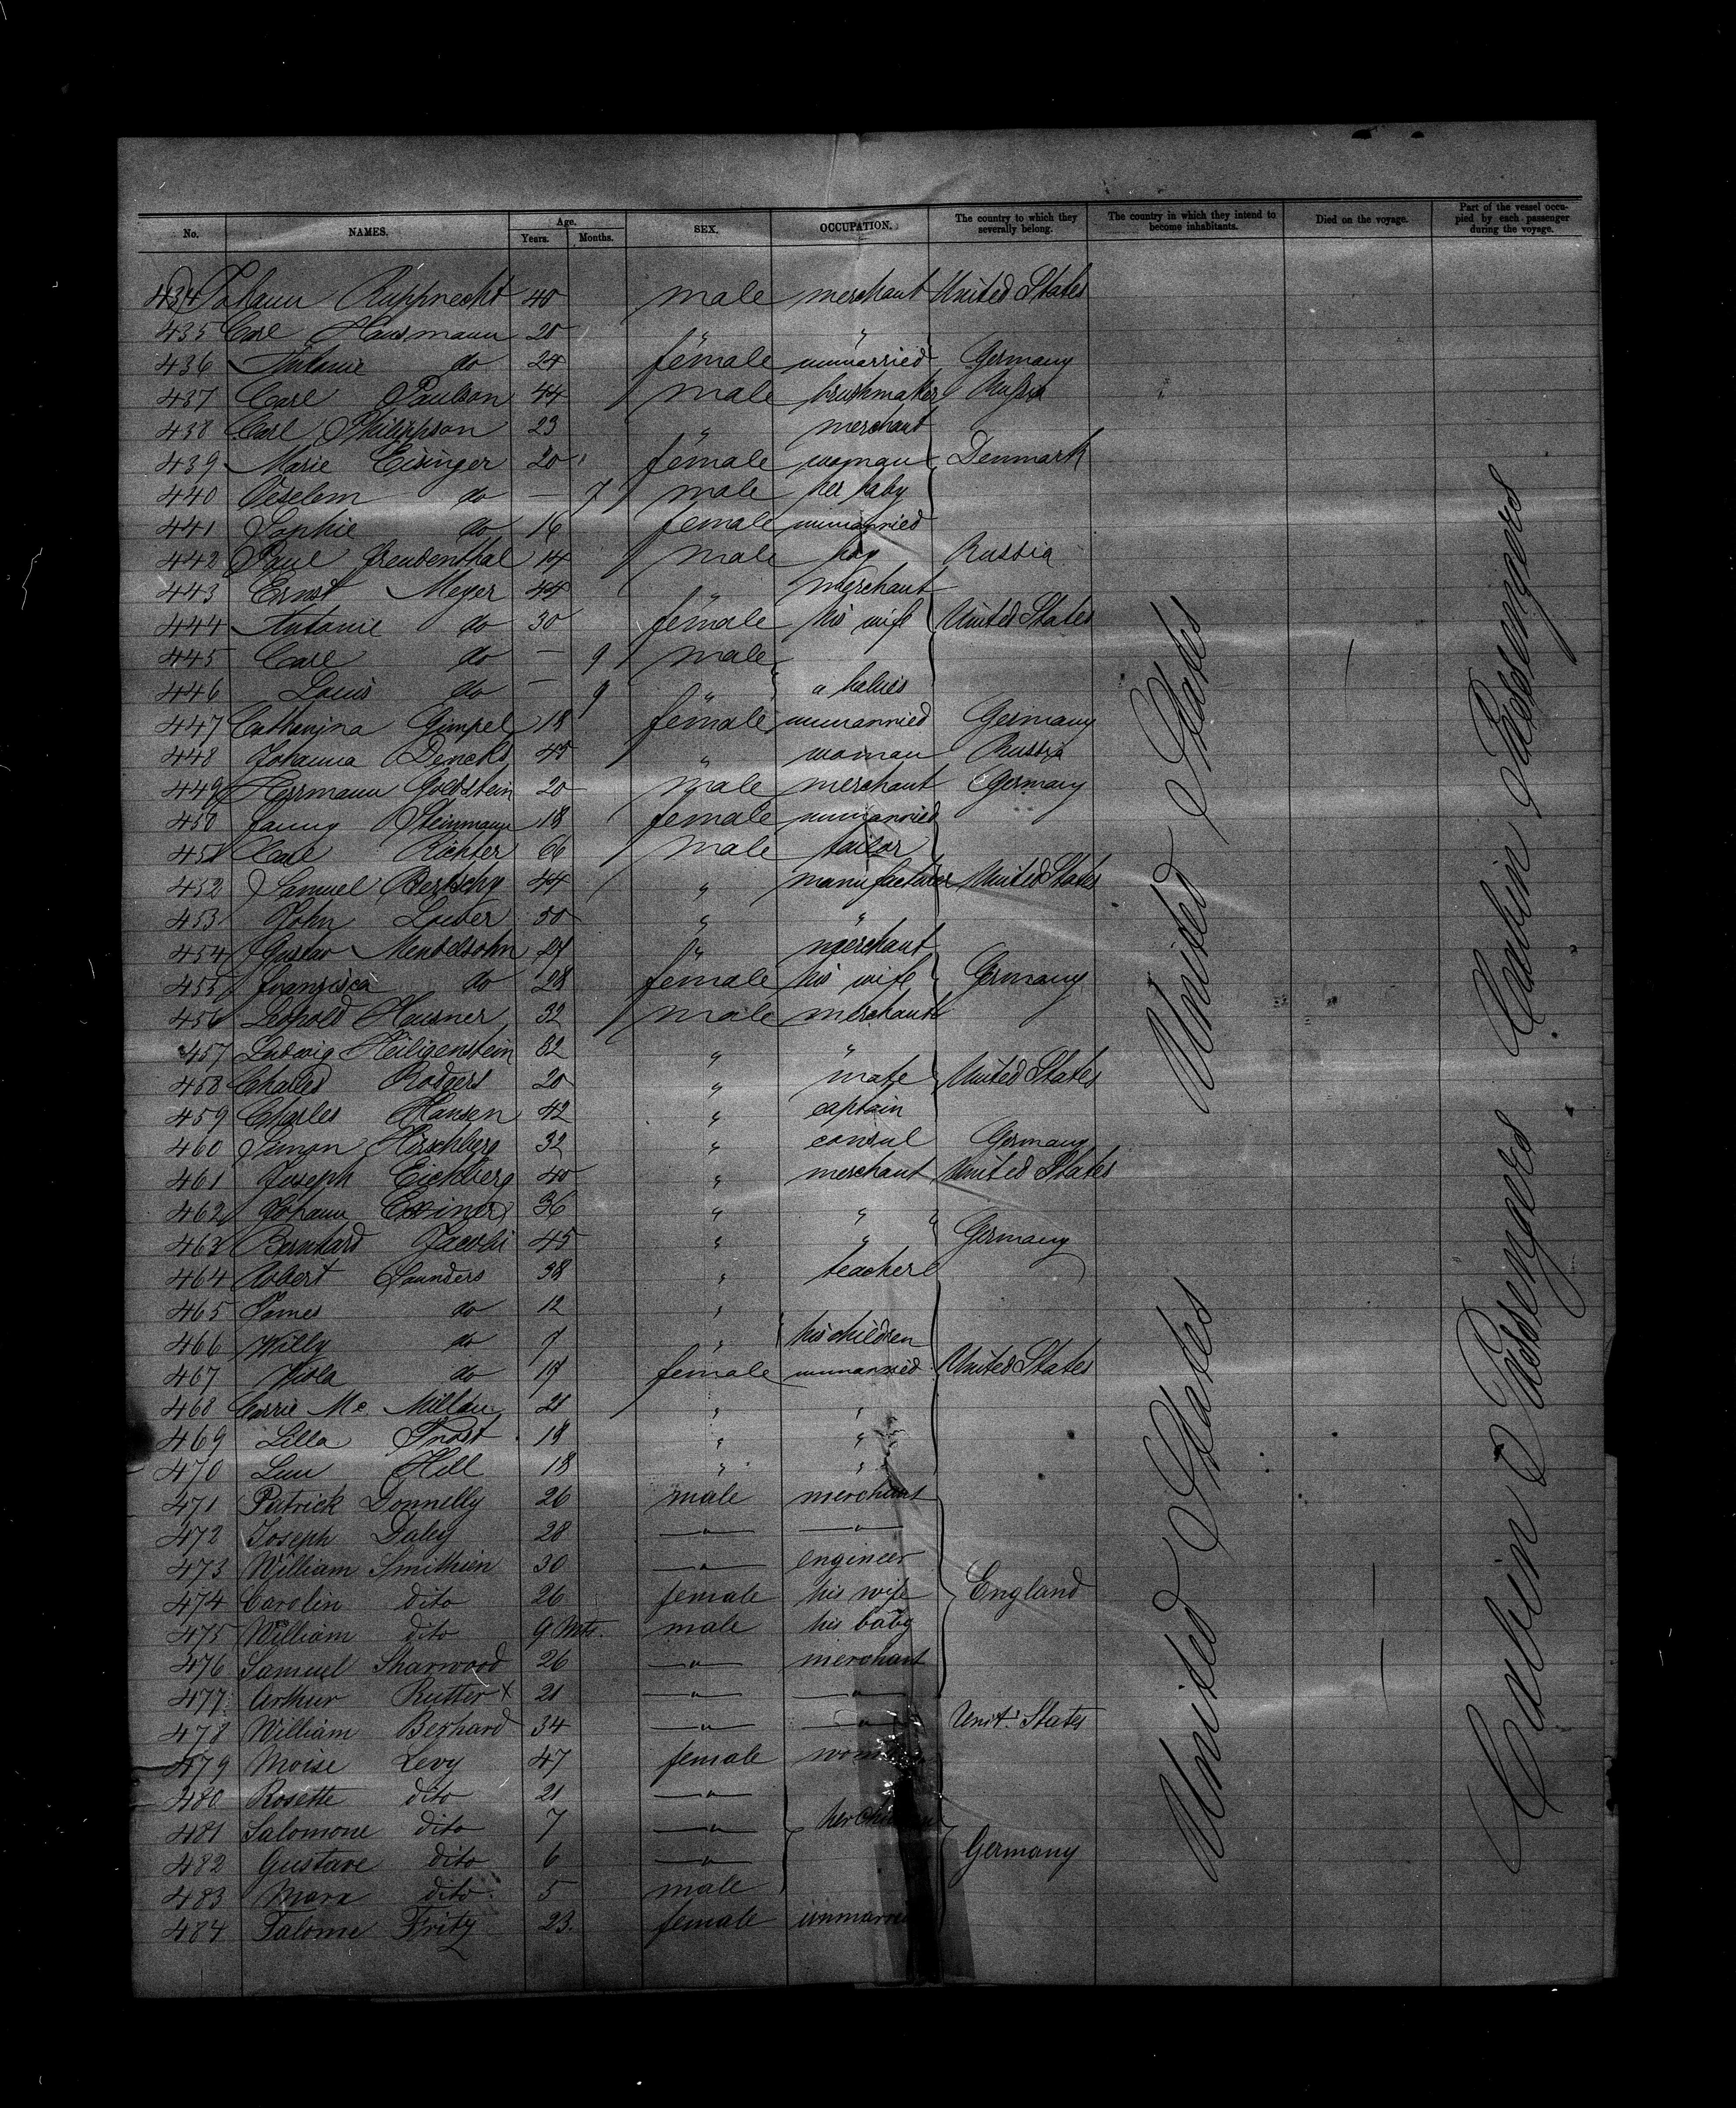 No. NAMES. Age. Years. Months. SEX. OCCUPATION. The country to which they severally belong. The country in which they intend to become inhabitants. Died on the voyage. Part of the vessel occupied by each passenger during the voyage.
434 Johann Rupprecht 40 male merchant United States
435 Carl Hausmann 20 " "
436 Antonie do 24 female unmarried Germany
437 Carl Paulson 44 male brushmaker Russia
438 Carl Philippson 23 " merchant
439 Marie Eisinger 20 female woman Denmark
440 do — 7 male her baby
441 Sophie do 16 female unmarried
442 Paul Freudenthal 14 male boy Russia
443 Ernst Meyer 44 " merchant
444 Antonie do 30 female his wife United States
445 Carl do — 9 male
446 Louis do — 9 " babies
447 Catharina Gimpel 18 female unmarried Germany
448 Johanna Dencks 45 " woman Russia
449 Herrmann Goldstein 20 male merchant Germany
450 Fanny Steinmann 18 female unmarried
451 Carl Richter 66 male tailor
452 Samuel Bertschy 44 " manufacturer United States
453 John Lower 50 " "
454 Gustav Mendelsohn 27 " merchant
455 Franzisca do 28 female his wife Germany
456 Leopold Hausner 32 male merchant
457 Ludwig Heiligenstein 32 " "
458 Charles Rodgers 20 " mate United States
459 Charles Hansen 42 " captain
460 Simon Hirschberg 32 " consul Germany
461 Joseph Eichberg 40 " merchant United States
462 Johann 36 " " "
463 Bernhard Jacobi 45 " " Germany
464 Robert Saunders 38 " teacher
465 James do 12 "
466 Willy do 7 " his children
467 Viola do 17 female unmarried United States
468 Carrie Mc. Millan 21 " "
469 Lilla Frost 18 " "
470 Lun Hill 18 " "
471 Patrick Donnelly 26 male merchant
472 Joseph Daley 28 —"— —"—
473 William Smithien 30 —"— engineer
474 Carolin dito 26 female his wife England
475 William dito 9 Mts. male his baby
476 Samuel Sharwood 26 —"— merchant
477 Arthur Rutter X 21 —"— —"—
478 William Berhard 34 —"— —"— Unit. States
479 Moise Levy 47 female woman
480 Rosette dito 21 —"—
481 Salomone dito 7 —"— her children
482 Gustave dito 6 —"— Germany
483 Marx dito 5 male
484 Salome Fritz 23. female unmarried
United States United States
Cabin Passengers Cabin Passengers